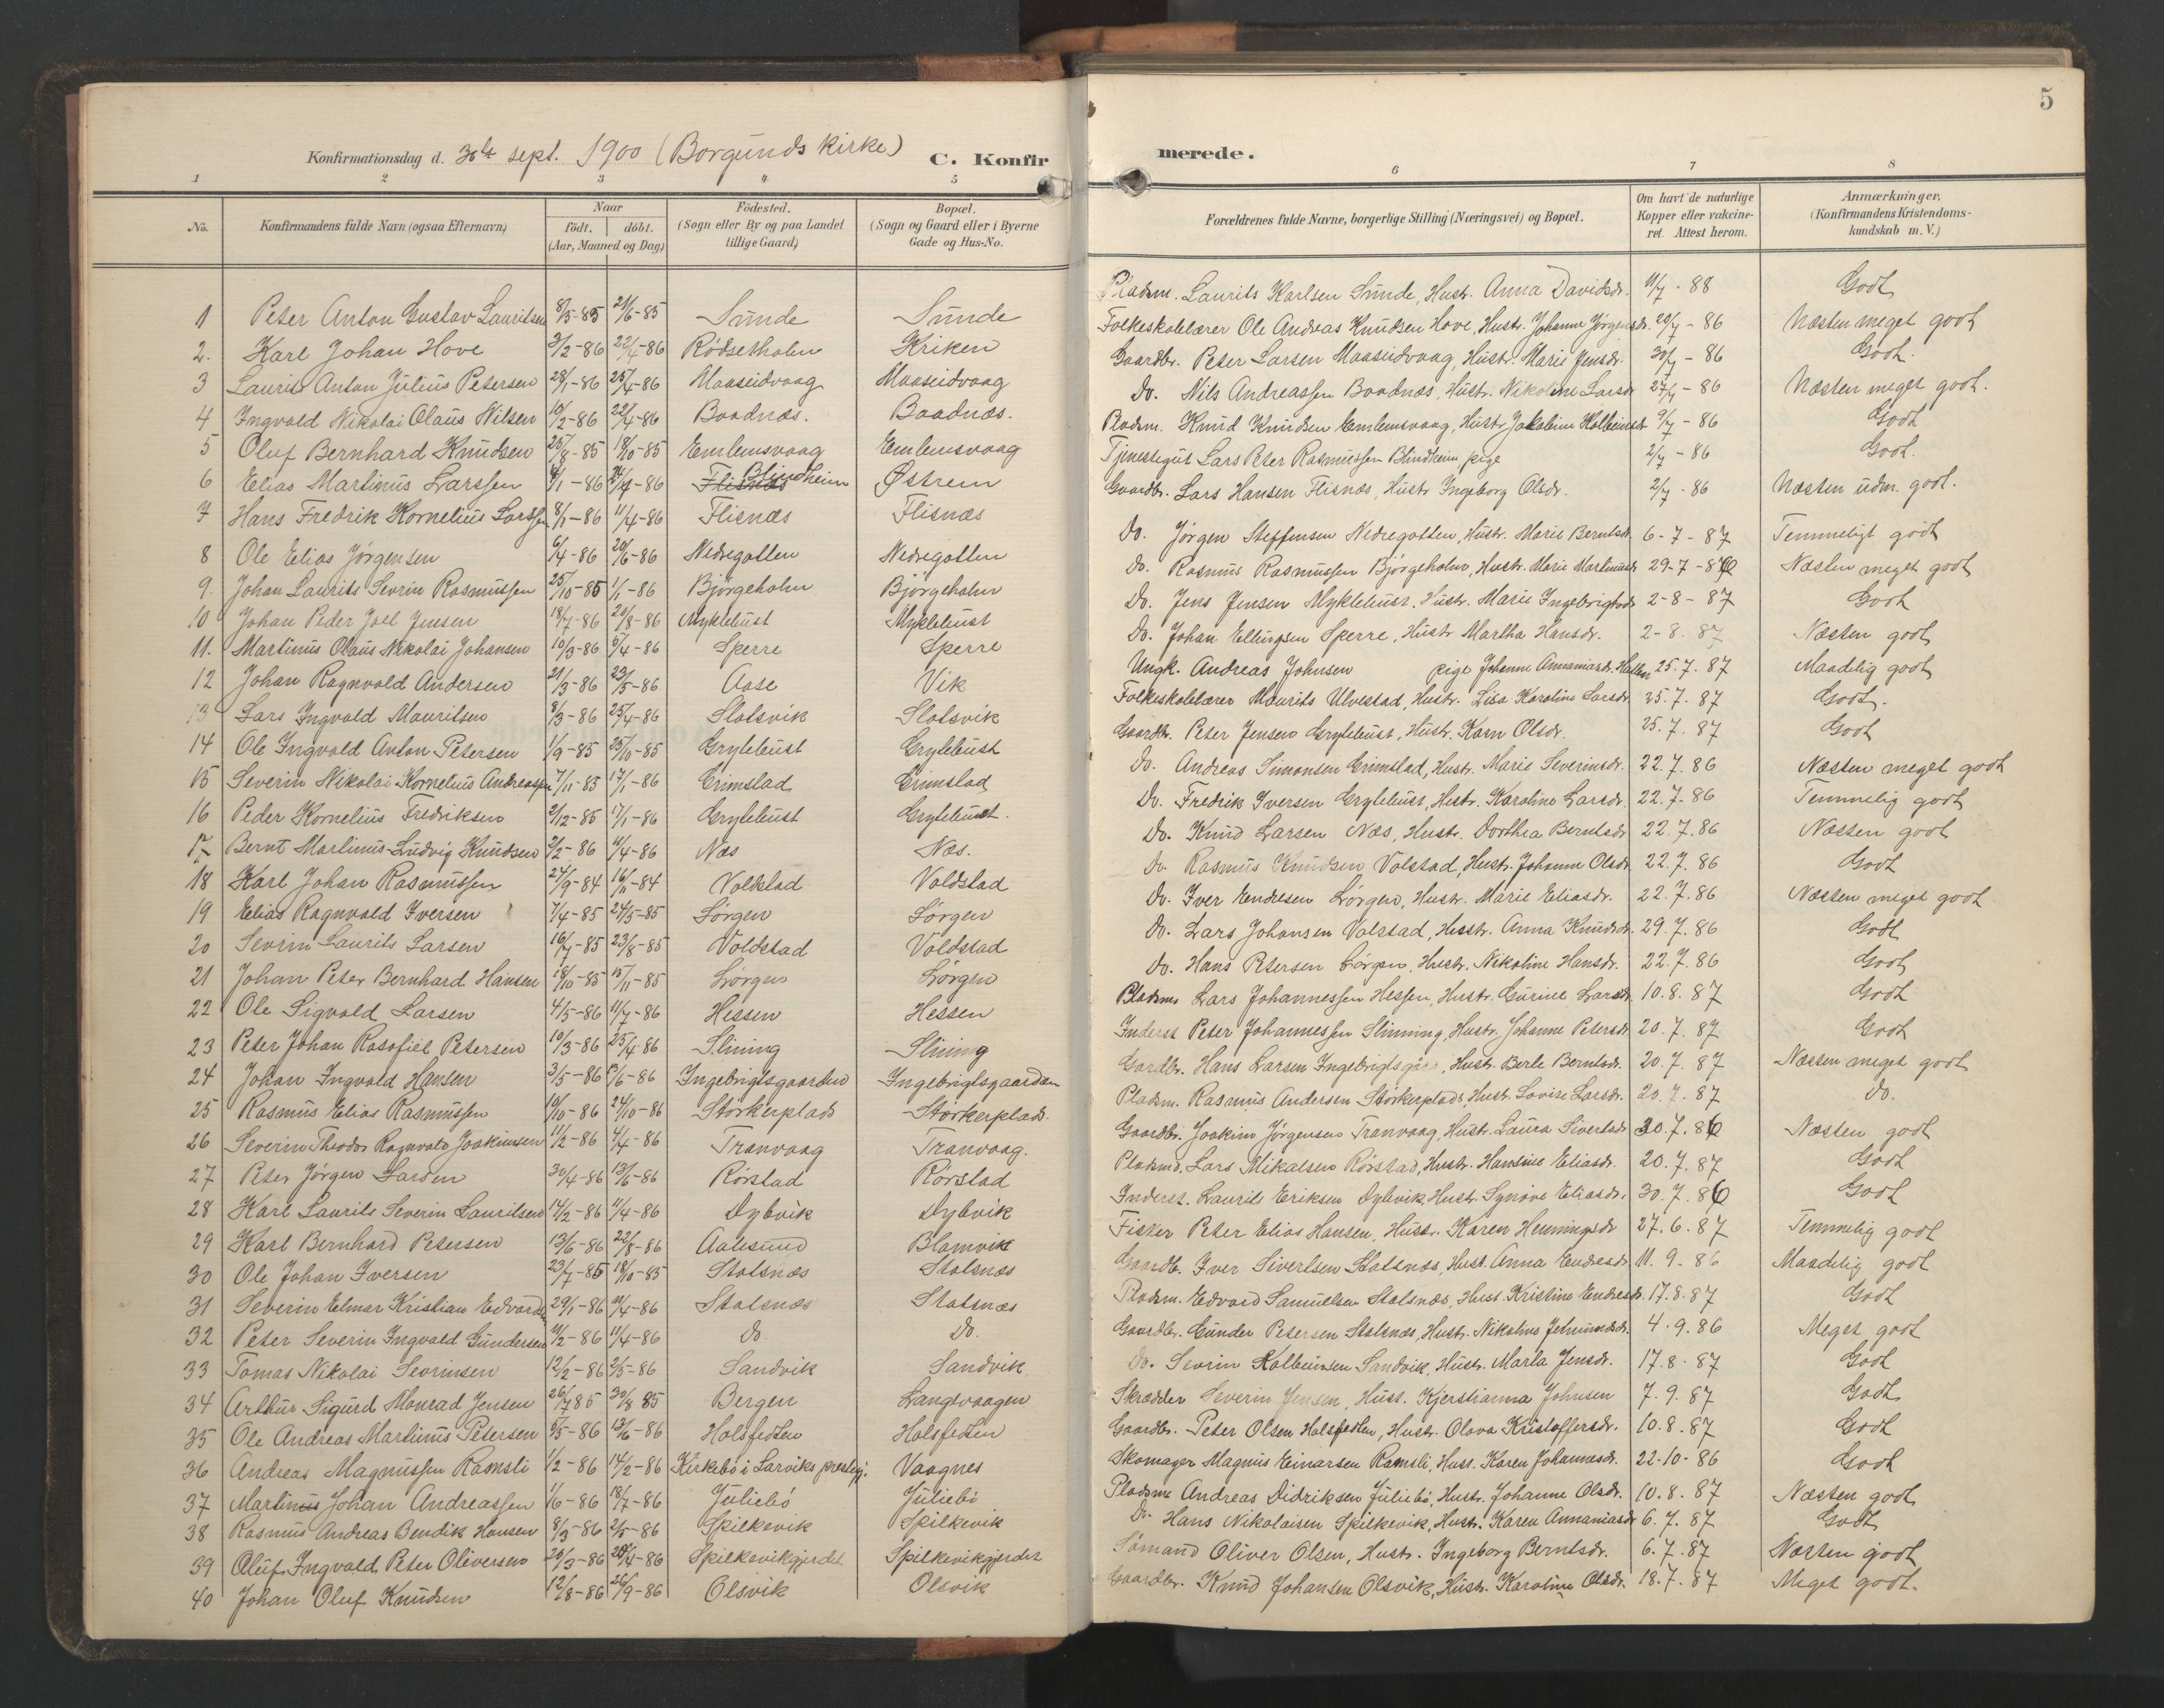 5
Konfirmationsdag d. 30te sept. 1900 (Borgunds kirke) C. Konfirmerede.
1 2 3 4 5 6 7 8
No. | Konfirmandens fulde Navn (ogsaa Efternavn) | Naar födt. döbt. (Aar, Maaned og Dag) | Födested. (Sogn eller By og paa Landet tillige Gaard) | Bopæl. (Sogn og Gaard eller i Byerne Gade og Hus-No. | Forældrenes fulde Navne, borgerlige Stilling (Næringsvei) og Bopæl. | Om havt de naturlige Kopper eller vakcineret. Attest herom. | Anmærkninger. (Konfirmandens Kristendomskundskab m. V.)
1 Peter Anton Gustav Lauritsen 8/5-85 21/6-85 Sunde Sunde Pladsm. Laurits Karlsen Sunde, Hustr. Anna Davidsdr. 11/7-88 Godt
2. Karl Johan Hove 3/2-86 22/4-86 Rödsetholm Kriken Folkeskolelærer Ole Andreas Knudsen Hove, Hustr. Johanne Jørgensdr. 20/7-86 Næsten meget godt
3 Laurits Anton Julius Petersen 28/1-86 25/4-86 Maaseidvaag Maaseidvaag Gaardbr. Peter Larsen Maaseidvaag, Hustr. Marie Jensdr. 30/7-86 Godt.
4 Ingvald Nikolai Olaus Nilsen 10/2-86 22/4-86 Baadnæs. Baadnæs. Do. Nils Andreassen Baadnæs, Hustr. Nikoline Larsdr 27/7-86 Næsten meget godt.
5 Oluf Bernhard Knudsen 25/8-85 18/10-85 Emlemsvaag Emlemsvaag Pladsm. Knud Knudsen Emlemsvaag, Hustr Jakobine Kolbeinsdr 9/7-86 Godt
6 Elias Martinus Larssen 4/1-86 26/4-86 Flisnæs Blindheim Østrem Tjenestegut Lars Peter Rasmussen Blindheim, pige 2/7-86 Godt.
7 Hans Fredrik Kornelius Larssen 8/1-86 11/4-86 Flisnæs Flisnæs Gaardbr. Lars Hansen Flisnæs, Hustr Ingeborg Olsdr. 2/7-86 Næsten udm. godt.
8 Ole Elias Jørgensen 6/4-86 20/6-86 Nedregotten Nedregotten Do. Jørgen Steffensen Nedregotten, Hustr. Marie Berntsdr. 6-7-87 Temmeligt godt
9. Johan Laurits Sevrin Rasmussen 25/10-85 1/1-86 Bjørgeholm Bjørgeholm Do. Rasmus Rasmussen Bjørgeholm, Hustr. Marie Martinusdr 29-7-86 Næsten meget godt
10 Johan Peder Joel Jensen 18/7-86 20/8-86 Myklebust Myklebust Do. Jens Jensen Myklebust, Hustr. Marie Ingebrigtsdr 2-8-87 Godt
11. Martinus Olaus Nikolai Johansen 10/3-86 6/4-86 Sperre Sperre Do. Johan Ellingsen Sperre, Hustr Martha Hansdr. 2-8.87 Næsten godt
12 Johan Ragnvald Andersen 21/3-86 23/5-86 Aase Vik Ungk. Andreas Johnsen pige Johanne Annaniasdr. Hatlen 25.7.87 Maadelig godt
13 Lars Ingvald Mauritsen 8/3-86 25/4-86 Slatsvik Slatsvik Folkeskolelærer Maurits Ulvestad, Hustr. Lisa Karoline Larsdr. 25.7.87 Godt.
14 Ole Ingvald Anton Petersen 1/9-85 25/10-85 Grytebust Grytebust Gaardbr. Peter Jensen Grytebust, Hustr. Karn Olsdr. 25.7.87 Godt
15 Severin Nikolai Kornelius Andreassen 7/11-85 17/1-86 Grimstad Grimstad Do. Andreas Simonsen Grimstad, Hustr. Marie Severinsdr. 22.7.86 Næsten meget godt
16 Peder Kornelius Fredriksen 2/12-85 17/1-86 Grytebust Grytebust. Do. Fredrik Iversen Grytebust, Hustr. Karoline Larsdr. 22.7.86 Temmelig godt
17 Bernt Martinus Ludvig Knudsen 2/2-86 11/4-86 Næs Næs. Do. Knud Larsen Næs, Hustr. Dorthea Berntsdr 22.7.86 Næsten godt
18 Karl Johan Rasmussen 24/9-84 16/11-84 Voldstad Voldstad Do. Rasmus Knudsen Volstad, Hustr. Johanne Olsdr. 22.7.86 Godt
19 Elias Ragnvald Iversen 7/4-85 24/5-85 Sørgen Sørgen Do. Iver Endresen Sørgen, Hustr. Marie Eliasdr. 22.7.86 Næsten meget godt
20 Sevrin Laurits Larsen 16/7-85 23/8-85 Voldstad Voldstad Do. Lars Johansen Volstad, Hustr. Anna Knudsdr. 29.7.86 Godt
21 Johan Peter Bernhard Hansen 18/10-85 15/11-85 Sørgen Sørgen Do. Hans Petersen Sørgen, Hustr. Nikoline Hansdr. 22.7.86 Godt
22 Ole Sigvald Larsen 4/5-86 11/7-86 Hessen Hessen Pladsm. Lars Johannessen Hessen, Hustr. Gurine Larsdr. 10.8.87 Godt
23 Peter Johan Rasofiel Petersen 10/3-86 25/4-86 Slining Slining Inderst Peter Johannessen Slinning, Hustr. Johanne Petersdr 20.7.87 Godt
24 Johan Ingvald Hansen 3/5-86 13/6-86 Ingebrigtsgaarden Ingebrigtsgaarden Gardbr. Hans Larsen Ingebrigtsgård, Hustr. Berte Berntsdr. 20.7.87 Næsten meget godt
25 Rasmus Elias Rasmussen 10/10-86 24/10-86 Storkerplads Storkerplads. Pladsm. Rasmus Andersen Storkerplads, Hust. Lovise Larsdr. 20.7.87 Do.
26 Severin Theodor Ragnvald Joakimsen 11/2-86 4/4-86 Tranvaag Tranvaag. Gaardbr. Joakim Jørgensen Tranvaag, Hustr. Laura Sivertsdr 30.7.86 Næsten godt
27 Peter Jørgen Larsen 30/4-86 13/6-86 Rörstad Rörstad Pladsmd. Lars Mikalsen Rörstad, Hustr. Hansine Eliasdr. 20.7.87 Godt
28 Karl Laurits Severin Lauritsen 14/2-86 11/4-86 Dybvik Dybvik Inderst. Laurits Eriksen Dybvik, Hustr. Synøve Eliasdr. 30.7.86 Godt
29 Karl Bernhard Petersen 13/6-86 22/8-86 Aalesund Blamvik Fisker Peter Elias Hansen, Hustr. Karen Henningsdr 27.6.87 Temmelig godt
30 Ole Johan Iversen 23/7-85 18/10-85 Stalsnæs Stalsnæs Gaardb. Iver Sivertsen Stalsnæs, Hust. Anna Endresdr. 11.9.86 Maadelig godt
31 Severin Elmar Kristian Edvards. 29/1-86 11/4-86 Stalsnæs Stalsnæs Pladsm. Edvard Samuelsen Stalsnæs, Hust. Kristine Endresdr. 17.8.87 Godt
32 Peter Severin Ingvald Gundersen 11/2-86 11/4-86 Do. Do. Gaardbr. Gunder Petersen Stalsnæs, Hustr. Nikoline Jetmundsdr. 4.9.86 Meget godt
33 Tomas Nikolai Sevrinsen 12/2-86 2/5-86 Sandvik Sandvik Do. Sevrin Kolbeinsen Sandvik, Hustr. Marta Jensdr. 17.8.87 Godt
34 Arthur Sigurd Monrad Jensen 26/7 85 30/8 85 Bergen Langevaagen Skrædder Severin Jensen, Hust. Kjerstianna Johnsen 7.9.87 Godt
35 Ole Andreas Martinus Petersen 5/5-86 13/6-86 Holsfedten Holsfedten Gaardbr. Peter Olsen Holsfedten, Hustr. Olava Kristoffersdr. 10.8.87 Godt
36 Andreas Magnussen Ramsli 1/2-86 14/2-86 Kirkebö i Larviks prestegj. Vaagnes Skomager Magnus Einarsen Ramsli, Hust. Karen Johannesdr. 22-10-86 Godt
37 Martinus Johan Andreassen 1/6-86 18/7-86 Juliebö Juliebö Pladsm Andreas Didriksen Juliebö, Hustr. Johanne Olsdr. 10.8.87 Næsten godt
38 Rasmus Andreas Bendik Hansen 8/3-86 2/5-86 Spilkevik Spilkevik Do. Hans Nikolaisen Spilkevik, Hustr. Karen Annaniasdr 6.7.87 Godt
39 Oluf Ingvald Peter Oliversen 20/3-86 26/4-86 Spilkevikgjerdet Spilkevikgjerdet Sømand Oliver Olsen, Hustr. Ingeborg Berntsdr. 6.7.87 Næsten godt
40 Johan Oluf Knudsen 12/8-86 26/9-86 Olsvik Olsvik Gaardbr. Knud Johansen Olsvik, Hustr. Karoline Olsdr. 18.7.87 Meget godt.